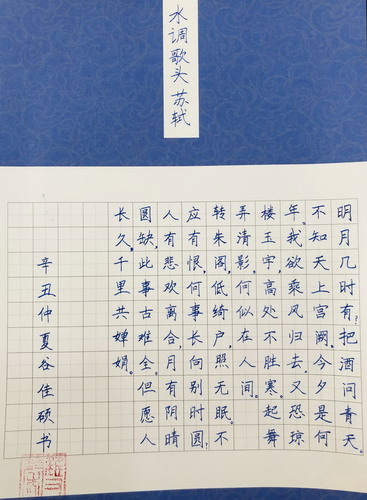 水调歌头 苏轼
明月几时有?把酒问青天。
不知天上宫阙,今夕是何
年。我欲乘风归去,又恐琼
楼玉宇,高处不胜寒。起舞
弄清影,何似在人间。
转朱阁,低绮户,照无眠。不
应有恨,何事长向别时圆?
人有悲欢离合,月有阴晴
圆缺,此事古难全。但愿人
长久,千里共婵娟。
辛丑仲夏谷佳硕书